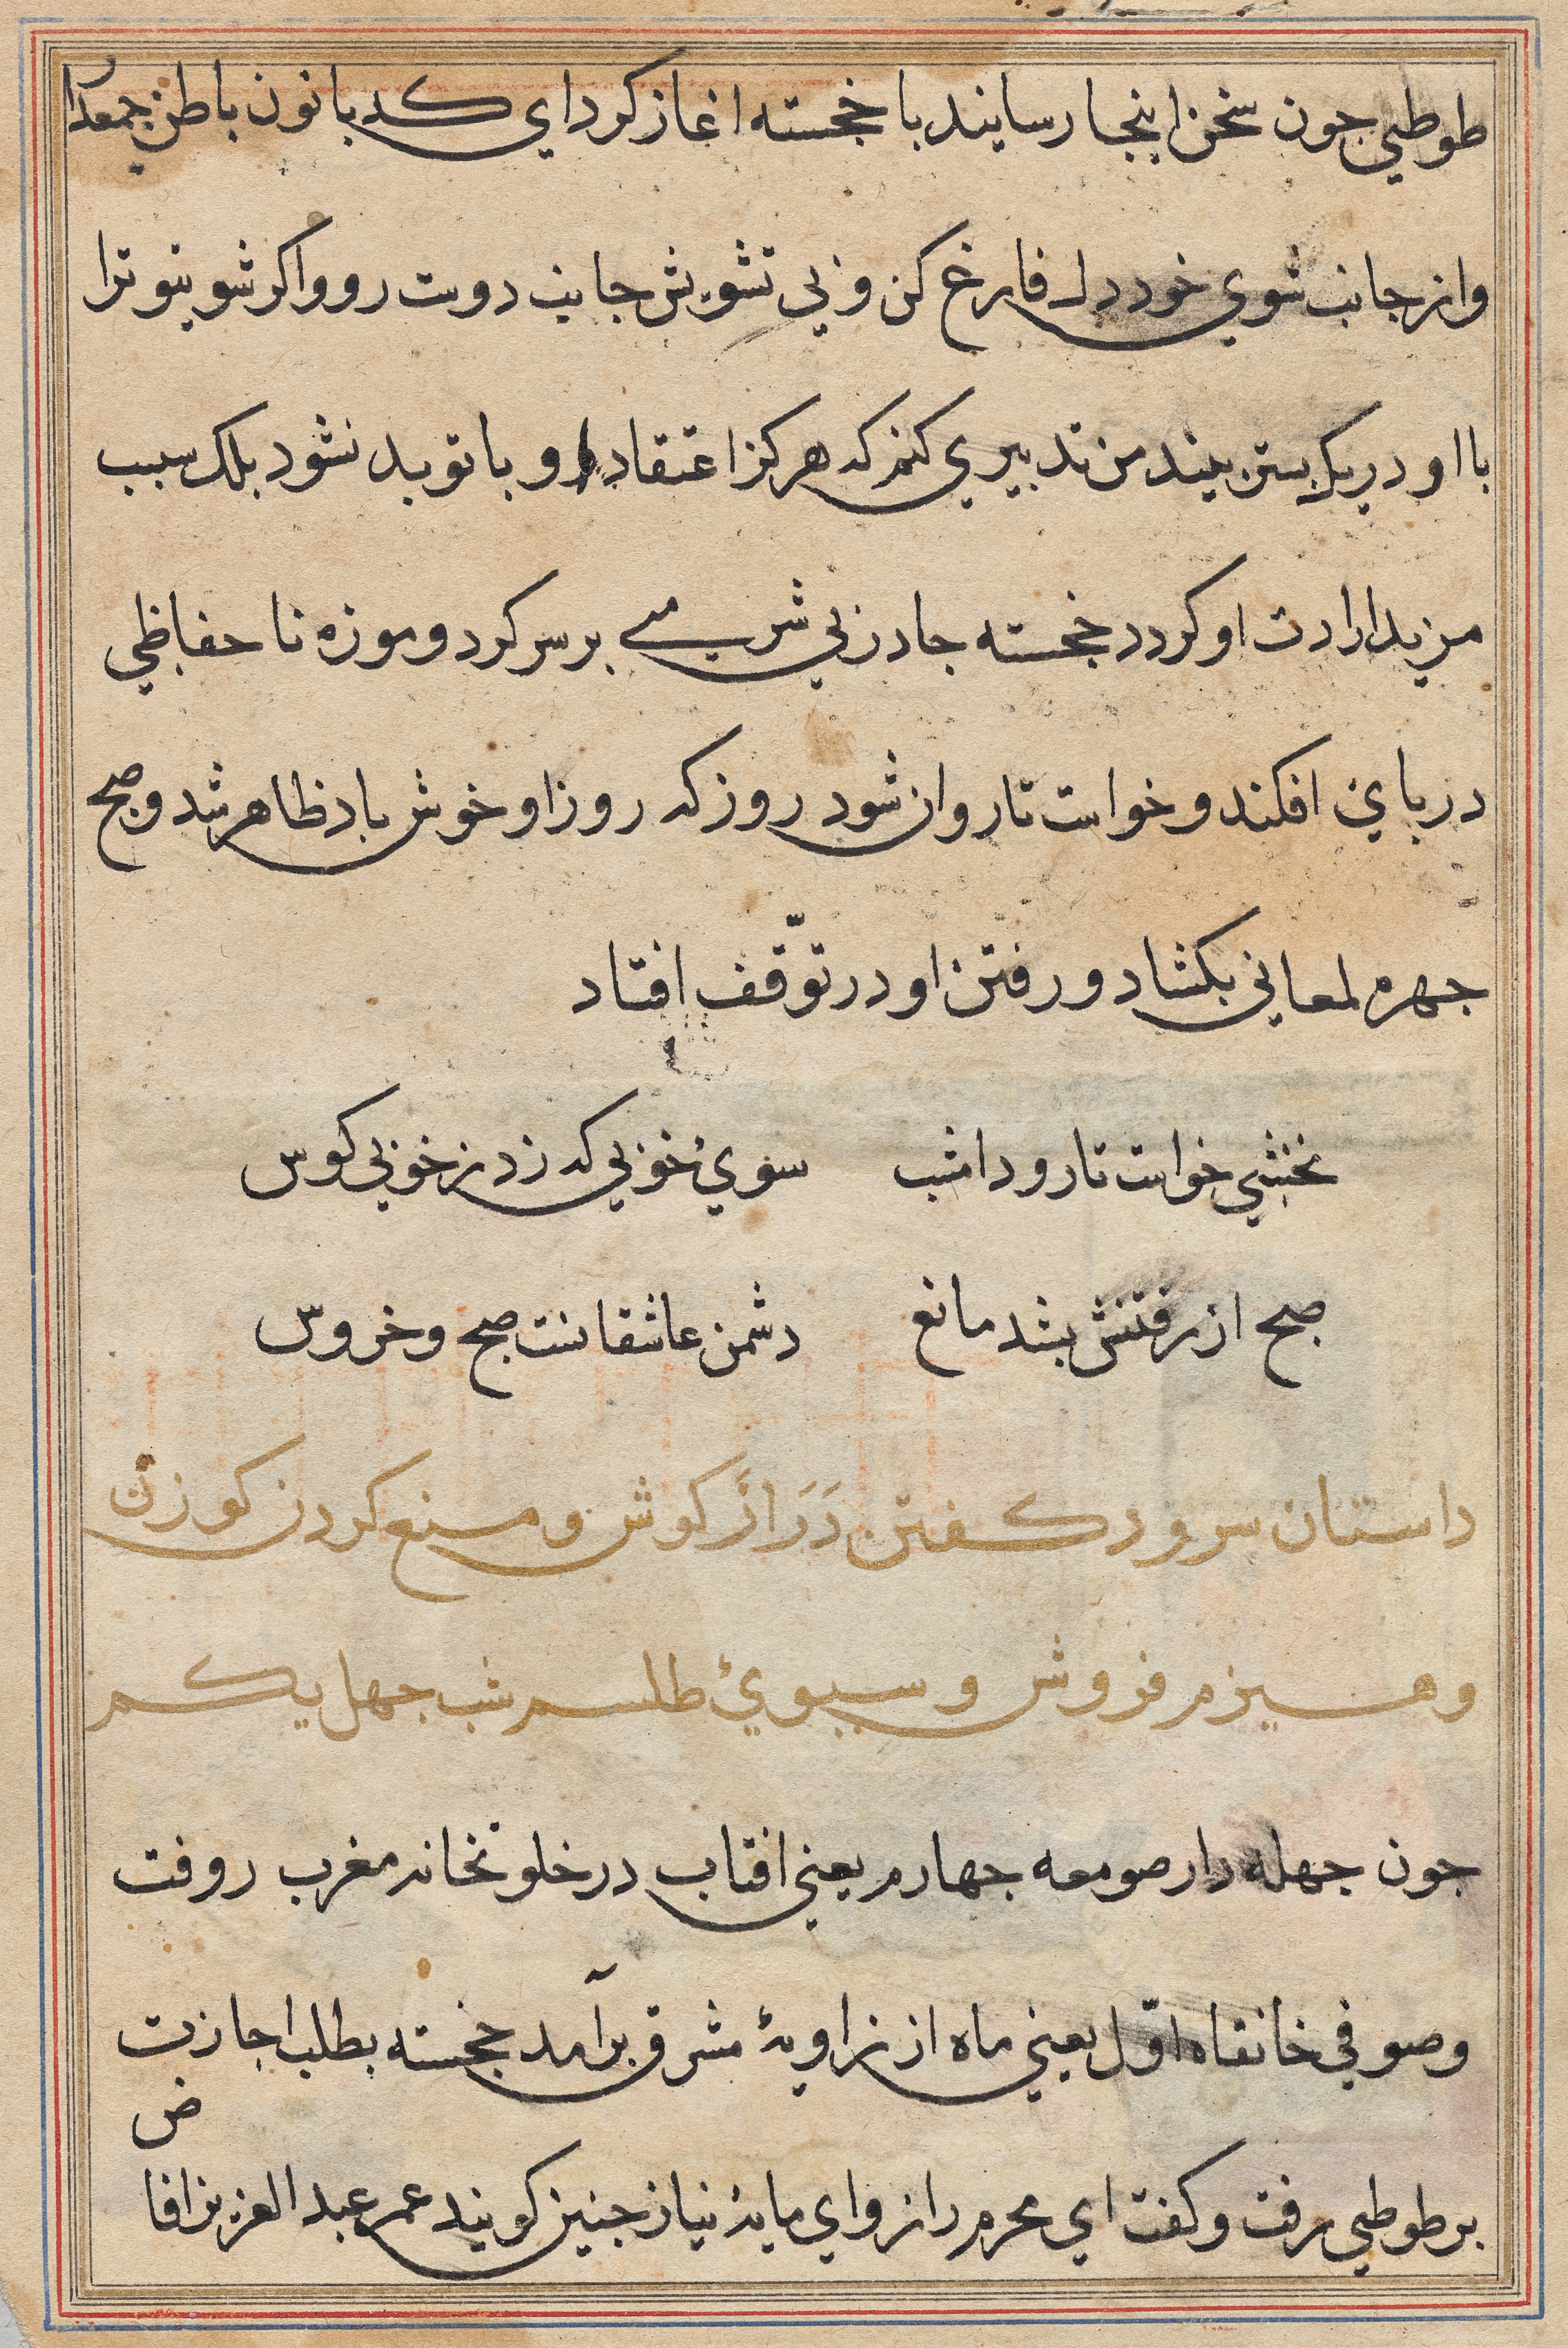 طوطي جون سخن اینجا رسانید با خجسته اغاز کرد اي کد بانون باطن جمع دار
واز جانب شوي خود دل فارغ کن و بي تشویش جانب دوست رو و اکر شوي تو ترا
با او در یک بستر بیند من تدبیري کنم که هرکز اعتقاد او با تو بد نشود بلک سبب
مزید ارادت او کردد خجسته جادر بي شرمي بر سر کرد و موزه نا حفاظي
در پاي افکند و خواست تا روان شود روز که روز او خوش باد ظاهر شد و صبح
جهره لمعاني بکشاد و رفتن او در توّقف افتاد
نخشبي خواست تا رود امشب سوي خوبي که زد ز خوبي کوس
صبح از رفتنش بشد مانع دشمن عاشقانست صبح و خروس
داستان سرود کفتن دَرَازَ کوش و منع کردن کوزن
و هیزم فروش و سبوي طلسم شب جهل یکم
جون جهله دار صومعه جهارم یعني افتاب در خلوتخانه مغرب رو فت
و صوفي خانقاه اوّل یعني ماه از زاویهٔ مشرق برآمد خجسته بطلب اجازت
بر طوطي رفت و کفت اي محرم راز و اي مایهٔ نیاز جنین کویند عمر عبد العزیز را قا
ض